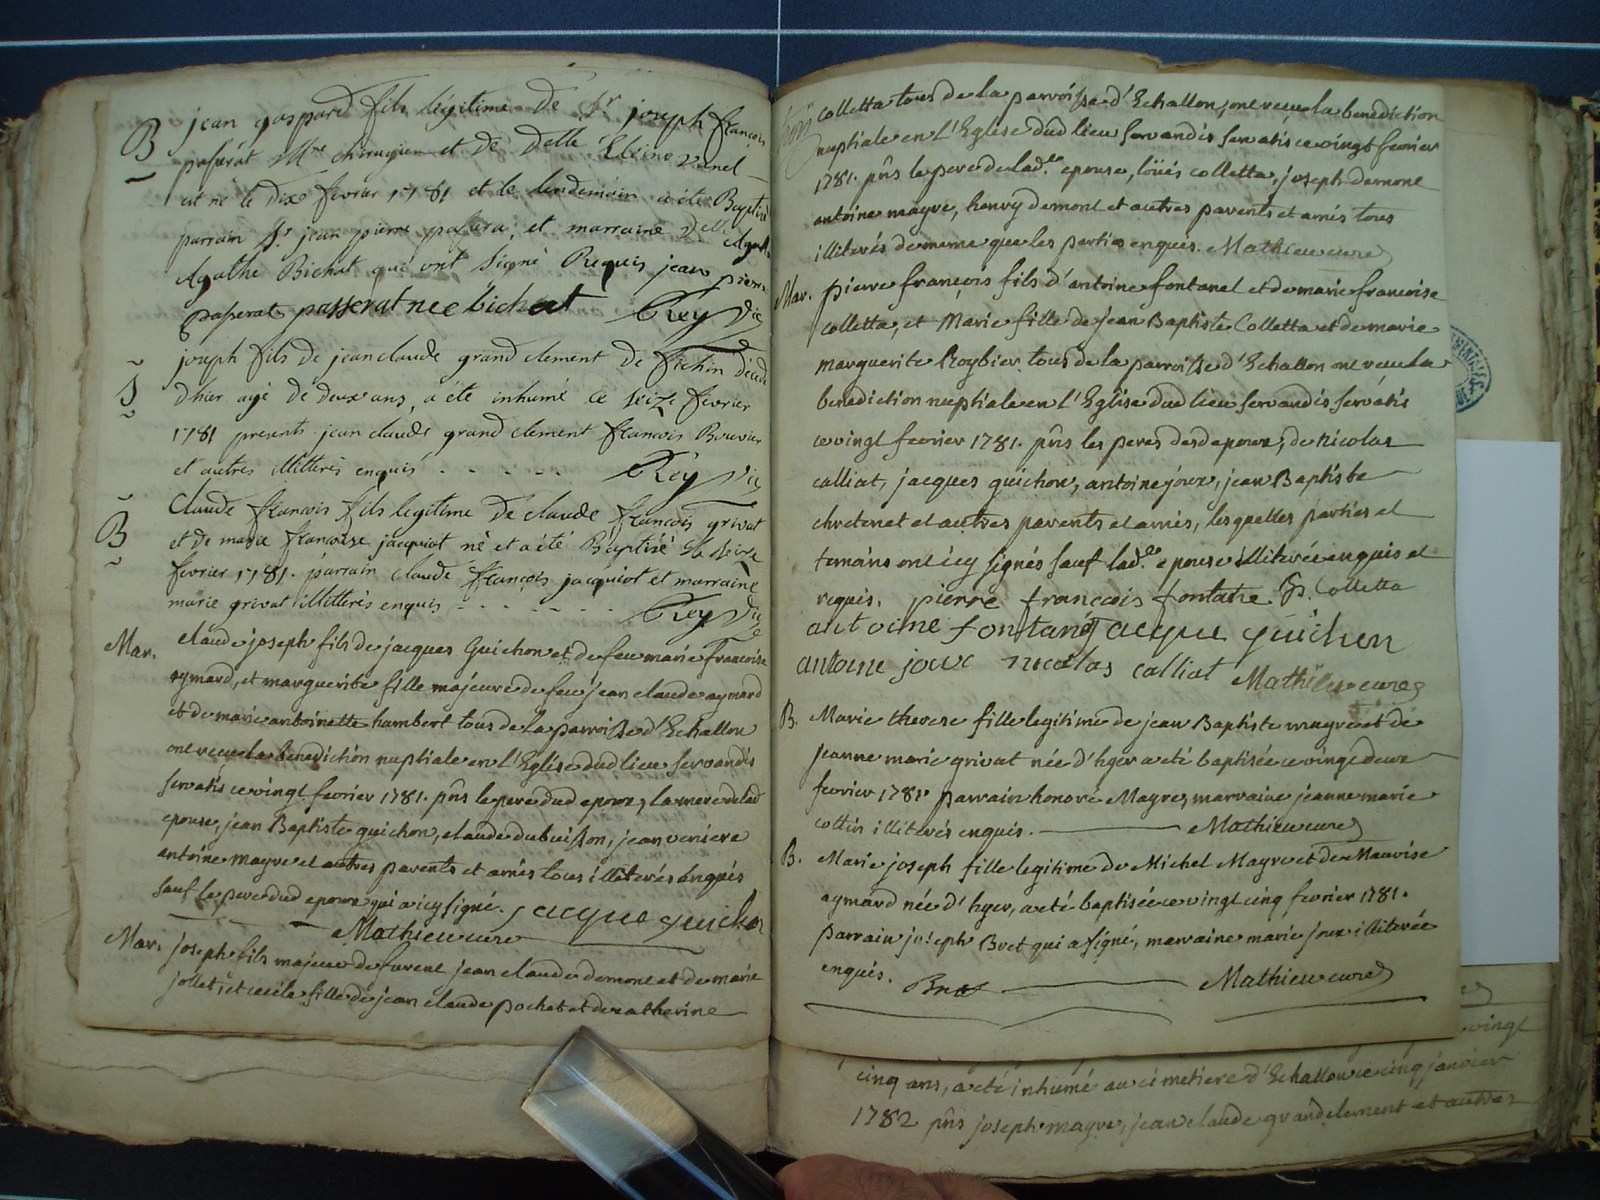 B jean gaspard fils légitime de Sr joseph françois
passerat Mre chirugien et de Delle
est né le dix fevrier 1781 et le lendemain a été Baptisé
parrain Sr jean pierre passerat, et marraine Delle
Agathe Bichat qui ont signé Requis jean pierre
passerat passerat neé bichat Rey Vic
S joseph fils de jean claude grand clement de décédé
d'hier agé de deux ans, a été inhumé ce seize fevrier
1781 presents jean claude grand clement françois Bouvier
et autres illitterés enquis Rey Vic
B Claude françois fils legitime de claude françois grivat
et de marie francoise jacquiot né et a été Baptisé le seize
fevrier 1781. parrain claude françois jacquiot et marraine
marie grivat illitterés enquis Rey Vic
Mar. claude joseph fils de jacques Guichon et de feu marie francoise
aymard, et marguerite fille majeure de feu jean claude aymard
et de marie antoinette humbert tous de la parroisse d'Echallon
ont recu la benediction nuptiale en l'Eglise dud lieu servandis
servatis ce vingt fevrier 1781. pñs le pere dud epoux, la mere de lad
epouse, jean Baptiste guichon, claude dubuisson, jean veniere
antoine mayre et autres parents et amis tous illiterés enquis
sauf le pere dud epoux qui a icy signé. jacque guichon
Mathieu curé
Mar. joseph fils majeur de furent jean claude demont et de marie
jollet, et cecile fille de jean claude pochet et de catherine
colletta tous de la parroisse d'Echallon, ont recu la benediction
nuptiale en L'Eglise dud lieu servandis servatis ce vingt fevrier
1781. pñs le pere de lad.te epouse, loüis colletta, joseph demont
antoine mayre, henry demont et autres parents et amis tous
illiterés de meme que les parties enquis. Mathieu curé
Mar. pierre françois fils d'antoine fontanel et de marie francoise
colletta, et Marie fille de jean Baptiste Colletta et de marie
marguerite Roybier tous de la parroisse d'Echallon ont recu la
benediction nuptiale en L'Eglise dud lieu servandis servatis
ce vingt fevrier 1781. pñs les peres desd epoux, de nicolas
calliat, jacques guichon, antoine joux, jean Baptiste
chretenet et autres parents et amis, lesquelles parties et
temoins ont icy signés sauf lad.te epouse illiterée enquis et
requis. pierre françois fontane B. Colletta
antoine fontanel jacque guichon
antoine joux nicolas calliat Mathieu curé
B. Marie therese fille legitime de jean Baptiste mayre et de
jeanne marie grivat née d'hyer a eté baptisée ce vingt deux
fevrier 1781. parrain honoré Mayre, marraine jeanne marie
collin illiterés enquis. Mathieu curé
B. Marie joseph fille legitime de Michel Mayre et de Maurise
aymard née d'hyer, a eté baptisée ce vingt cinq fevrier 1781.
parrain joseph Bret qui a signé, marraine marie joux illiterée
enquis. Bret Mathieu curé
vingt
cinq ans, a eté inhumé au cimetiere d'Echallon ce cinq janvier
1782 pñs joseph mayre, jean claude grandclement et autres